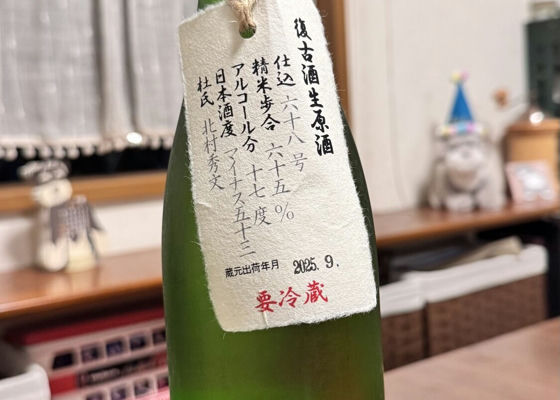 復古酒生原酒
仕込 六十八号
精米歩合 六十五%
アルコール分 十七度
日本酒度 マイナス五十二
杜氏 北村秀文
蔵元出荷年月 2025. 9.
要冷蔵